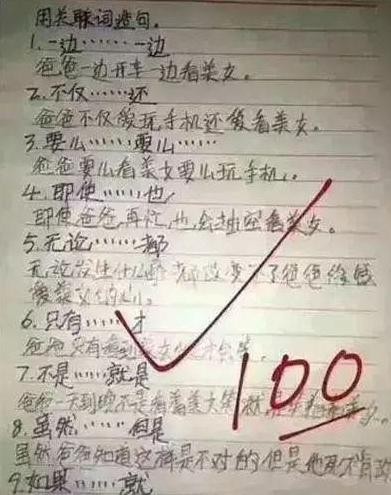 用关联词造句。
1.一边……一边
爸爸一边开车一边看美女。
2.不仅……还
爸爸不仅爱玩手机还爱看美女。
3.要么……要么……
爸爸要么看美女要么玩手机。
4.即使……也
即使爸爸再忙,也会抽空看美女。
5.无论……都
无论发生什么 都改变不了爸爸
爱美女的心。
6.只有……才
爸爸只有看到美女 才会笑。
7.不是……就是
爸爸一天到晚不是看着美女笑就
8.虽然……但是
虽然爸爸知道这样是不对的但是他死不肯改
9.如果……就
100